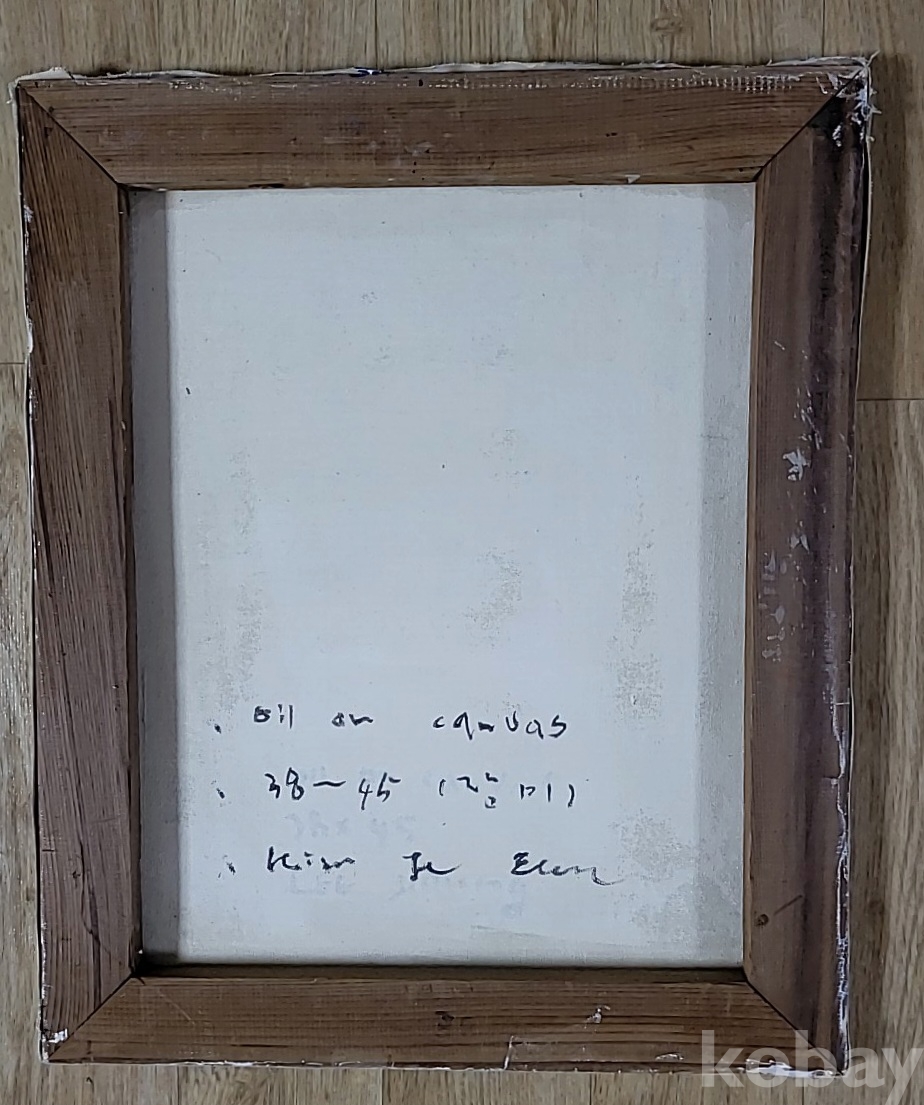 . oil on canvas
. 38~45 (장미)
. Kim Je Eun
kobay